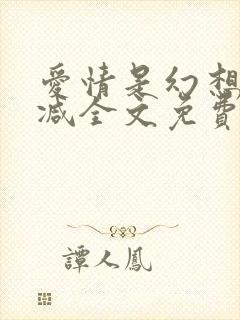 愛情是幻想
减全文免費
譚人鳳